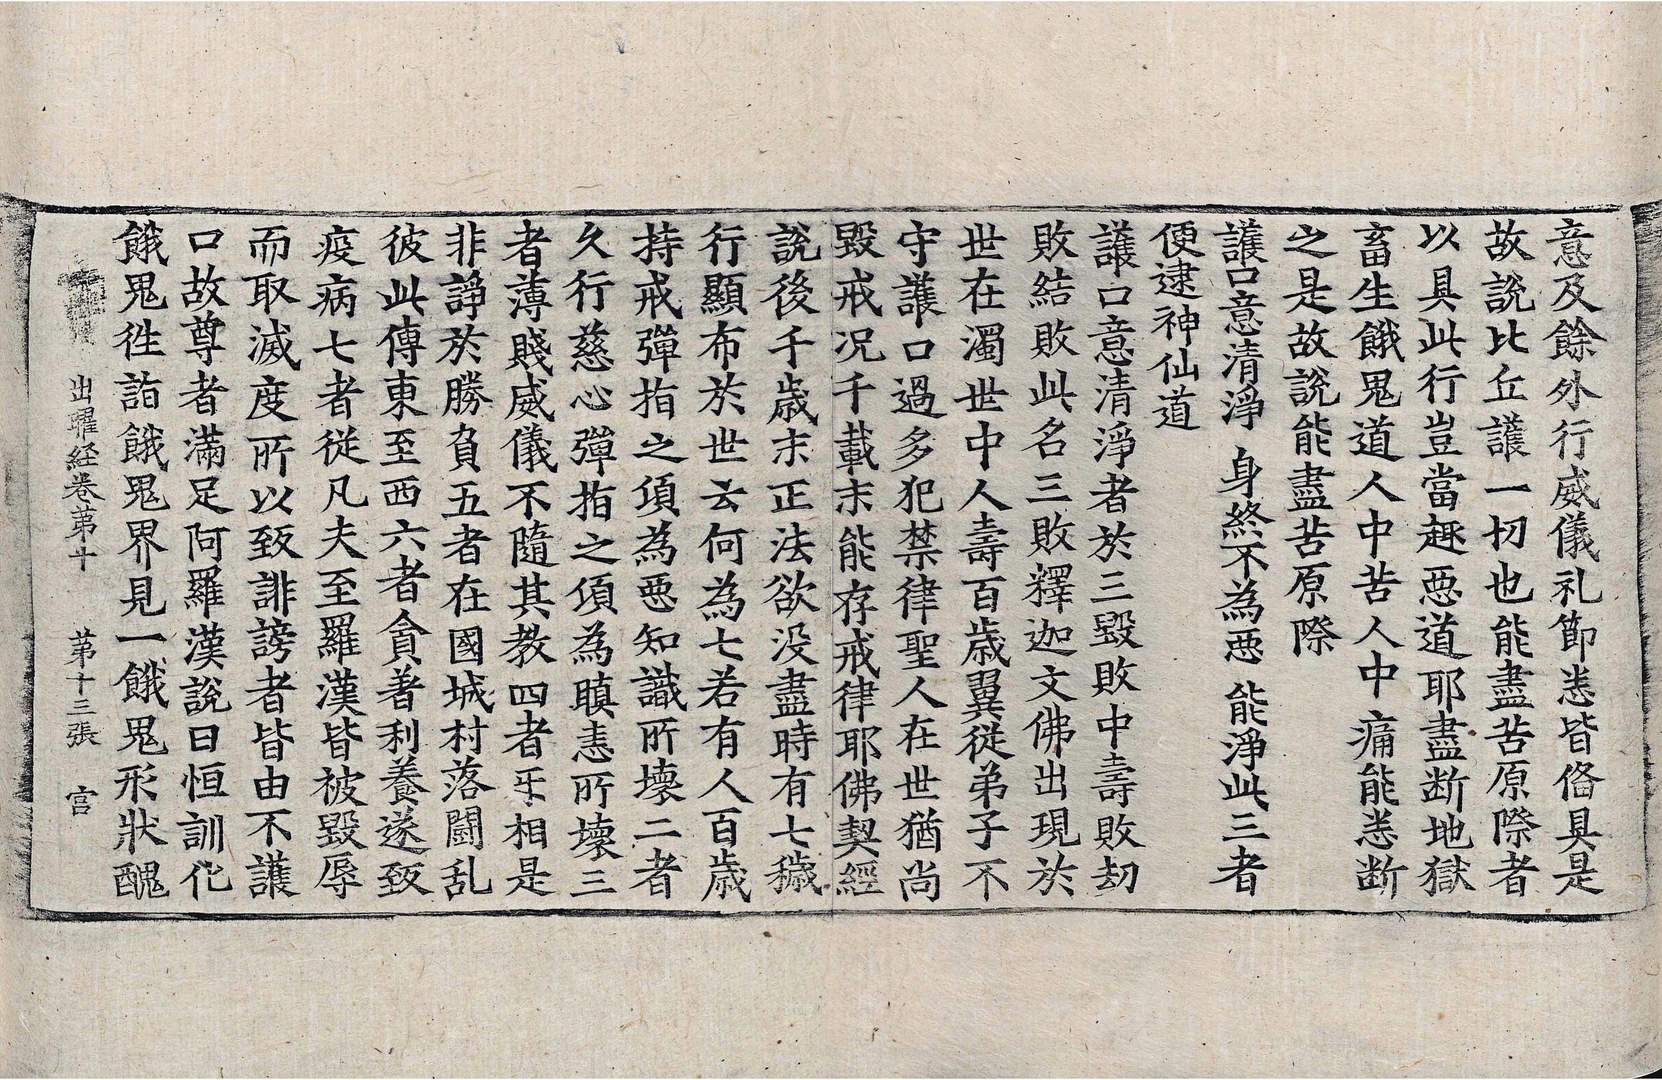 意及餘外行威儀礼節悉皆俻具是
故說比丘護一切也能盡苦原際者
以具此行豈當趣惡道耶盡断地獄
畜生餓鬼道人中苦人中痛能悉断
之是故說能盡苦原際
護口意清淨 身終不為惡 能淨此三者
便逮神仙道
護口意清淨者於三毀敗中壽敗劫
敗結敗此名三敗釋迦文佛出現於
世在濁世中人壽百歲翼從弟子不
守護口過多犯禁律聖人在世猶尚
毀戒況千載末能存戒律耶佛契經
說後千歲末正法欲没盡時有七穢
行顯布於世云何為七若有人百歲
持戒彈指之湏為惡知識所壞二者
久行慈心彈指之湏為瞋恚所壞三
者薄賤威儀不隨其教四者㸦相是
非諍於勝負五者在國城村落鬪乱
彼此傳東至西六者貪著利養遂致
疫病七者從凡夫至羅漢皆被毀辱
而取滅度所以致誹謗者皆由不護
口故尊者滿足阿羅漢說曰恒訓化
餓鬼徃詣餓鬼界見一餓鬼形狀醜
出曜経卷苐十 苐十三張 宫